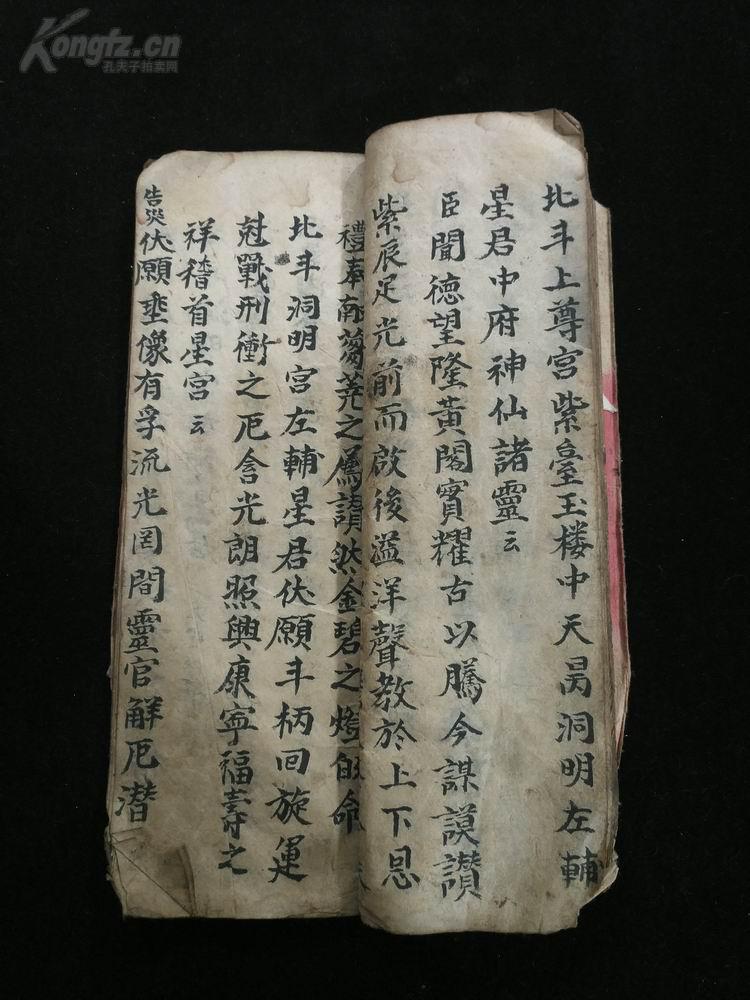 Kongfz.cn
孔夫子拍卖网
北斗上尊宫紫臺玉楼中天昺洞明左輔
星君中府神仙諸靈云
臣聞德望隆黄閣實耀古以騰今謀謨讃
紫辰足光前而啟後溢洋聲教於上下恩
禮奉南蒭荛之薦請然金碧之燈命
北斗洞明宫左輔星君伏願斗柄回旋運
尅戰刑衝之厄含光朗照興康寧福壽之
祥稽首星宫云
告災伏願垂像有孚流光罔間靈官解厄潜